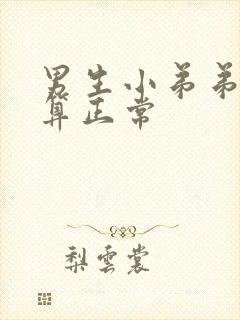 男生小弟弟
算正常
梨雲裳